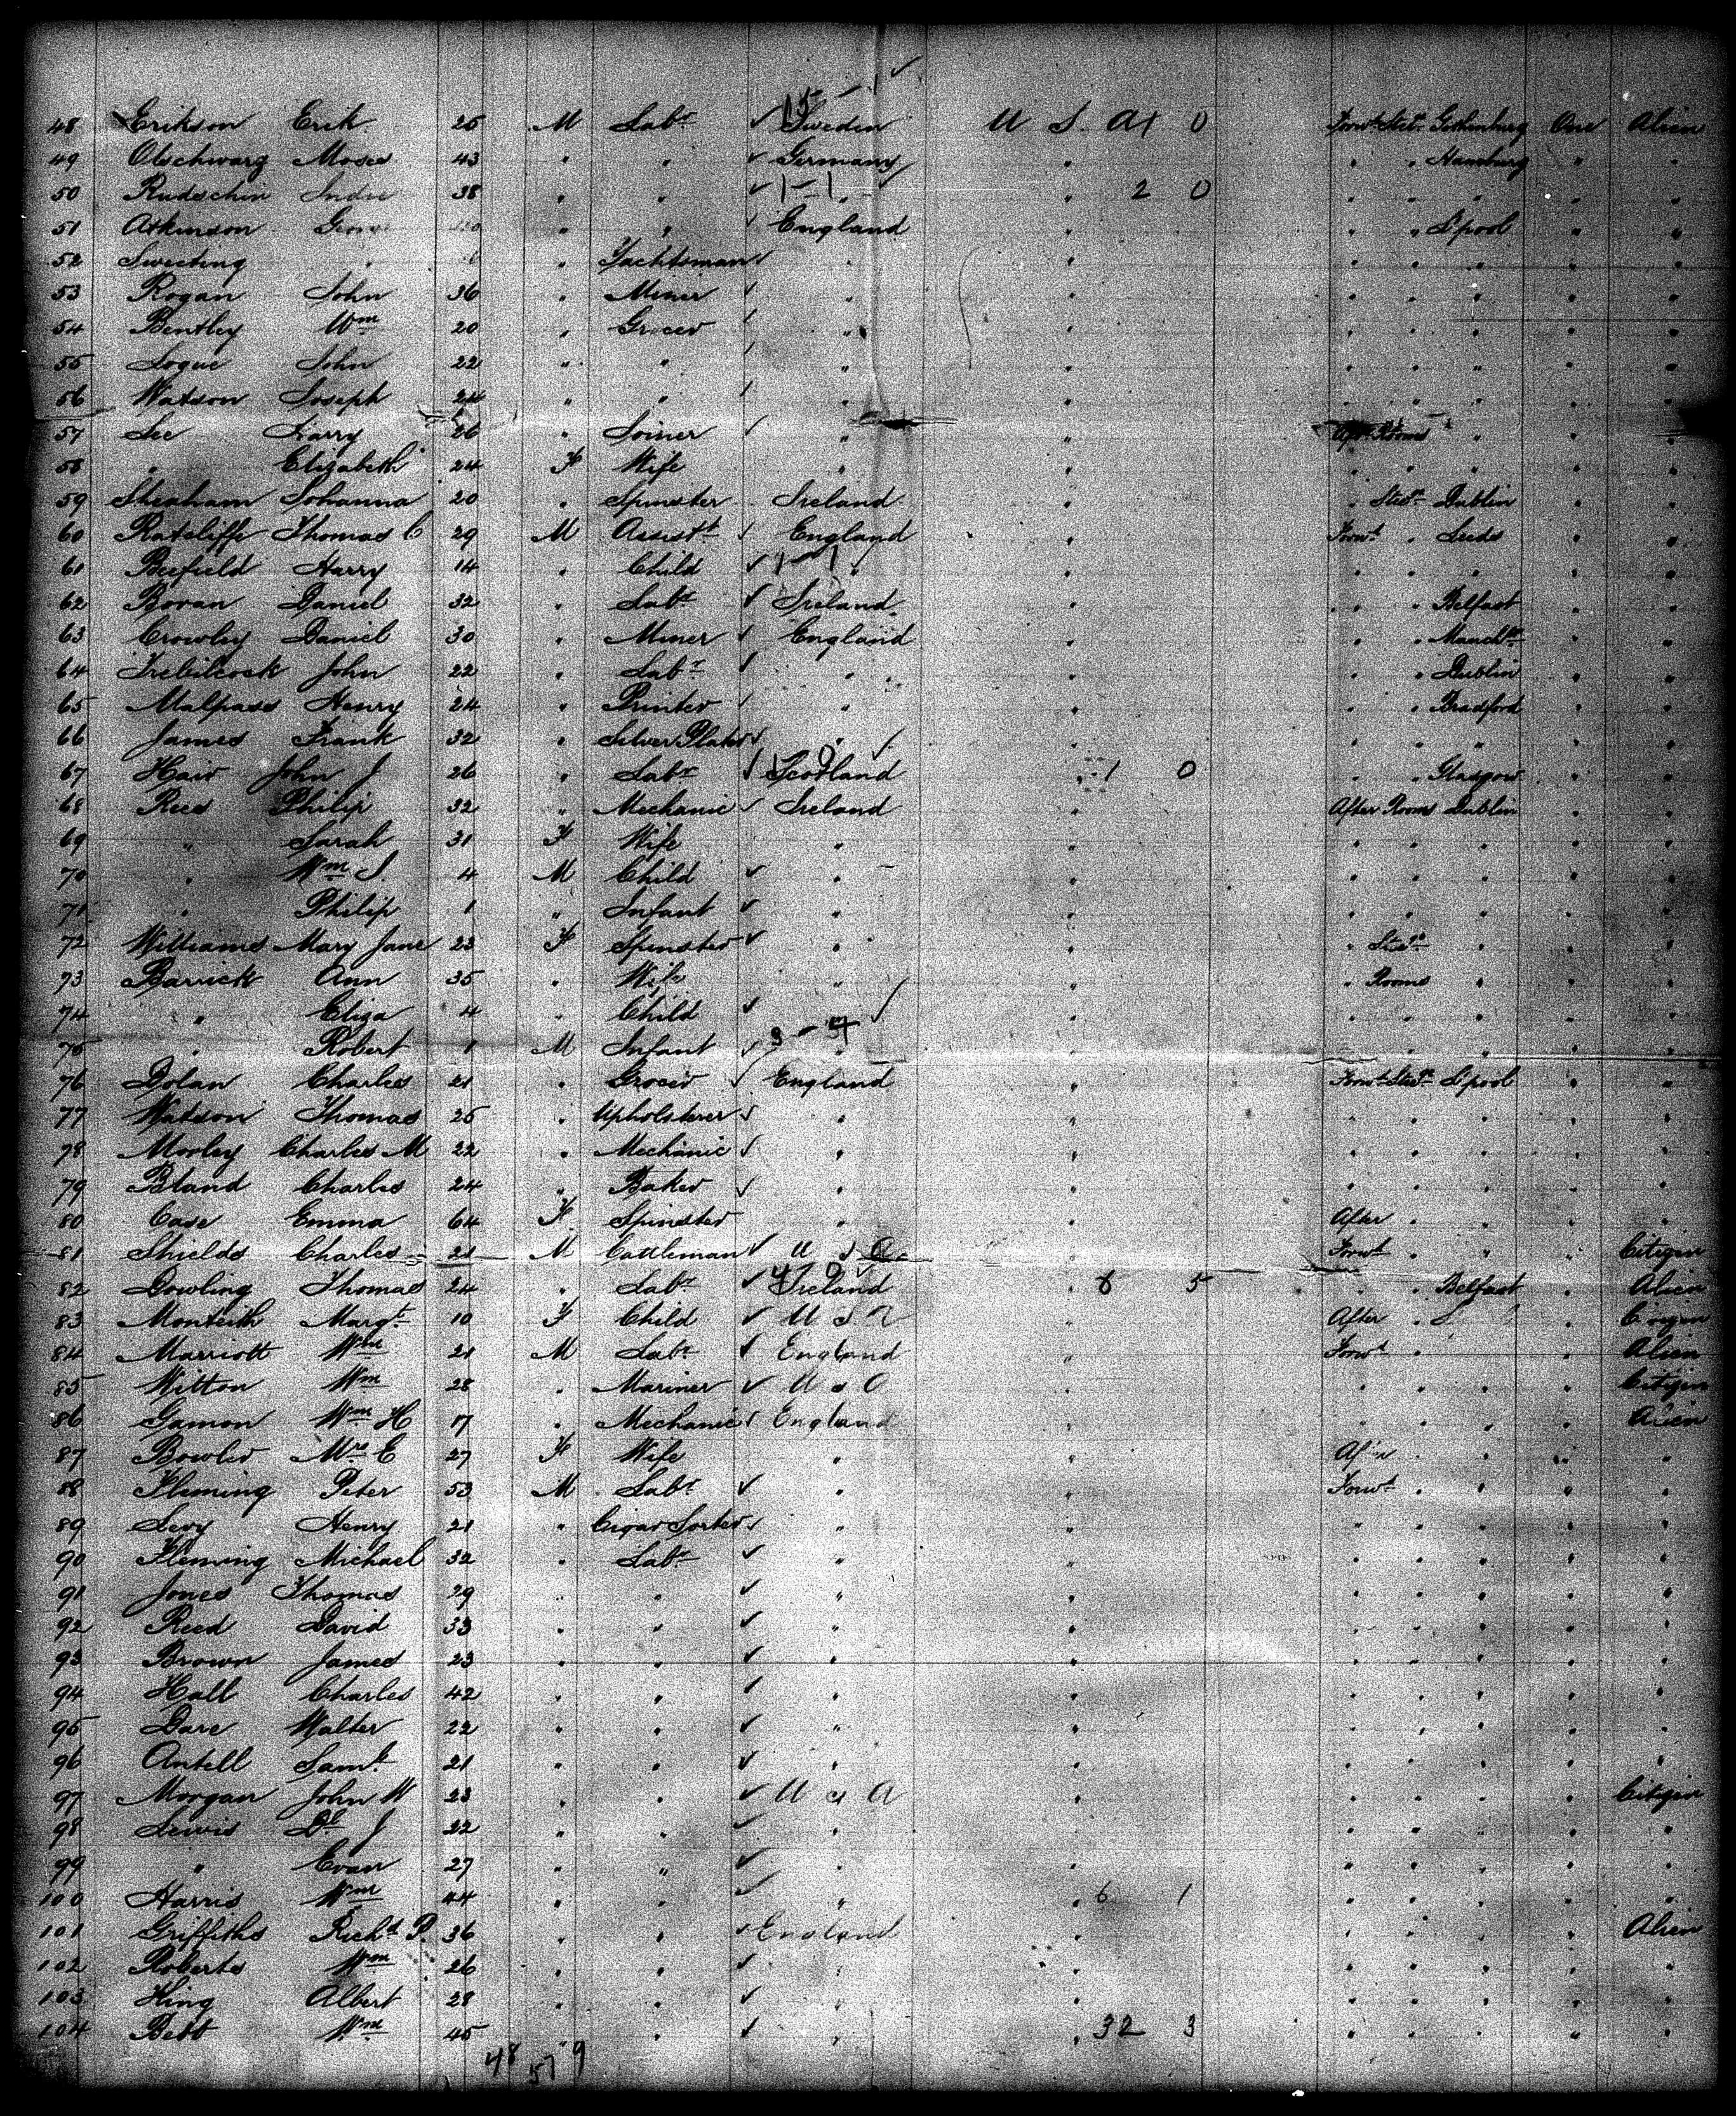 15 - 1 ✓
48 Erikson Erik 25 M Labr ✓ Sweden U S A 1 0 Forwd Stge Gothenburg One Alien
49 Olschwarg Moses 43 " " ✓ Germany " " " Hamburg " "
50 Rudschin 38 " " ✓ 1 - 1 ✓ " 2 0 " " " " "
51 Atkinson George " " ✓ England " " " L'pool " "
52 Sweeting " " Yachtsman ✓ " " " " " " "
53 Rogan John 36 " Miner ✓ " " " " " " "
54 Bentley Wm 20 " Grocer ✓ " " " " " " "
55 Logue John 22 " " ✓ " " " " " " "
56 Watson Joseph 24 " " ✓ " " " " " " "
57 Lee Harry 26 " Joiner ✓ " " Aftr Rooms " " "
58 " Elizabeth 24 F Wife " " " " " " "
59 Sheaham Johanna 20 " Spinster Ireland " " Stge Dublin " "
60 Ratcliffe Thomas C 29 M Assistt ✓ England " Forwd " Leeds " "
61 Beefield Harry 14 " Child ✓ 1 - 1 " ✓ " " " " " "
62 Boran Daniel 32 " Labr ✓ Ireland " " " Belfast " "
63 Crowley Daniel 30 " Miner ✓ England " " " Manchtr " "
64 Trebilcock John 22 " Labr ✓ " " " " Dublin " "
65 Malpass Henry 24 " Printer ✓ " " " " Bradford " "
66 James Frank 32 " Silver Plater ✓ " ✓ " " " " " "
67 Hair John J 26 " Labr ✓ Scotland " 1 0 " " Glasgow " "
68 Rees Philip 32 " Mechanic ✓ Ireland " After Rooms Dublin " "
69 " Sarah 31 F Wife " " " " " " "
70 " Wm J. 4 M Child ✓ " " " " " " "
71 " Philip 1 " Infant ✓ " " " " " " "
72 Williams Mary Jane 23 F Spinster ✓ " " " Stge " " "
73 Barrick Ann 35 " Wife " " " Rooms " " "
74 " Eliza 4 " Child ✓ ✓ " " " " " "
75 " Robert 1 M Infant ✓ 3 - 7 " " " " " " "
76 Dolan Charles 21 " Grocer ✓ England " Forwd Stge L'pool " "
77 Watson Thomas 25 " Upholsterer ✓ " " " " " " "
78 Morley Charles M 22 " Mechanic ✓ " " " " " " "
79 Bland Charles 24 " Baker ✓ " " " " " " "
80 Case Emma 64 F Spinster " " After " " " "
81 Shields Charles 21 M Cattleman ✓ U S A " Forwd " " " Citizen
82 Dowling Thomas 24 " Labr ✓ Ireland " 8 5 " " Belfast " Alien
83 Monteith Margt 10 F Child ✓ U S A " After " " Citizen
84 Marriott Wm 21 M Labr ✓ England " Forwd " " Alien
85 Witton Wm 28 " Mariner ✓ U S A " " " " " Citizen
86 Gamon Wm H 17 " Mechanic ✓ England " " " " " Alien
87 Bowler Mrs E 27 F Wife " " After " " " "
88 Fleming Peter 53 M Labr ✓ " " Forwd " " " "
89 Levy Henry 21 " Cigar Sorter ✓ " " " " " " "
90 Fleming Michael 32 " Labr ✓ " " " " " " "
91 Jones Thomas 29 " " ✓ " " " " " " "
92 Reed David 33 " " ✓ " " " " " " "
93 Brown James 23 " " ✓ " " " " " " "
94 Hall Charles 42 " " ✓ " " " " " " "
95 Dare Walter 22 " " ✓ " " " " " " "
96 Antell Saml 21 " " ✓ " " " " " " "
97 Morgan John W 23 " " ✓ U S A " " " " " Citizen
98 Lewis Dd J 22 " " ✓ " " " " " " "
99 " Evan 27 " " ✓ " " " " " " "
100 Harris Wm 44 " " ✓ " " 6 1 " " " " "
101 Griffiths Richd P. 36 " " ✓ England " " " " " Alien
102 Roberts Wm 26 " " ✓ " " " " " " "
103 King Albert 28 " " ✓ " " " " " " "
104 Bebb Wm 45 " ✓ " " 32 3 " " " " "
48 57 9